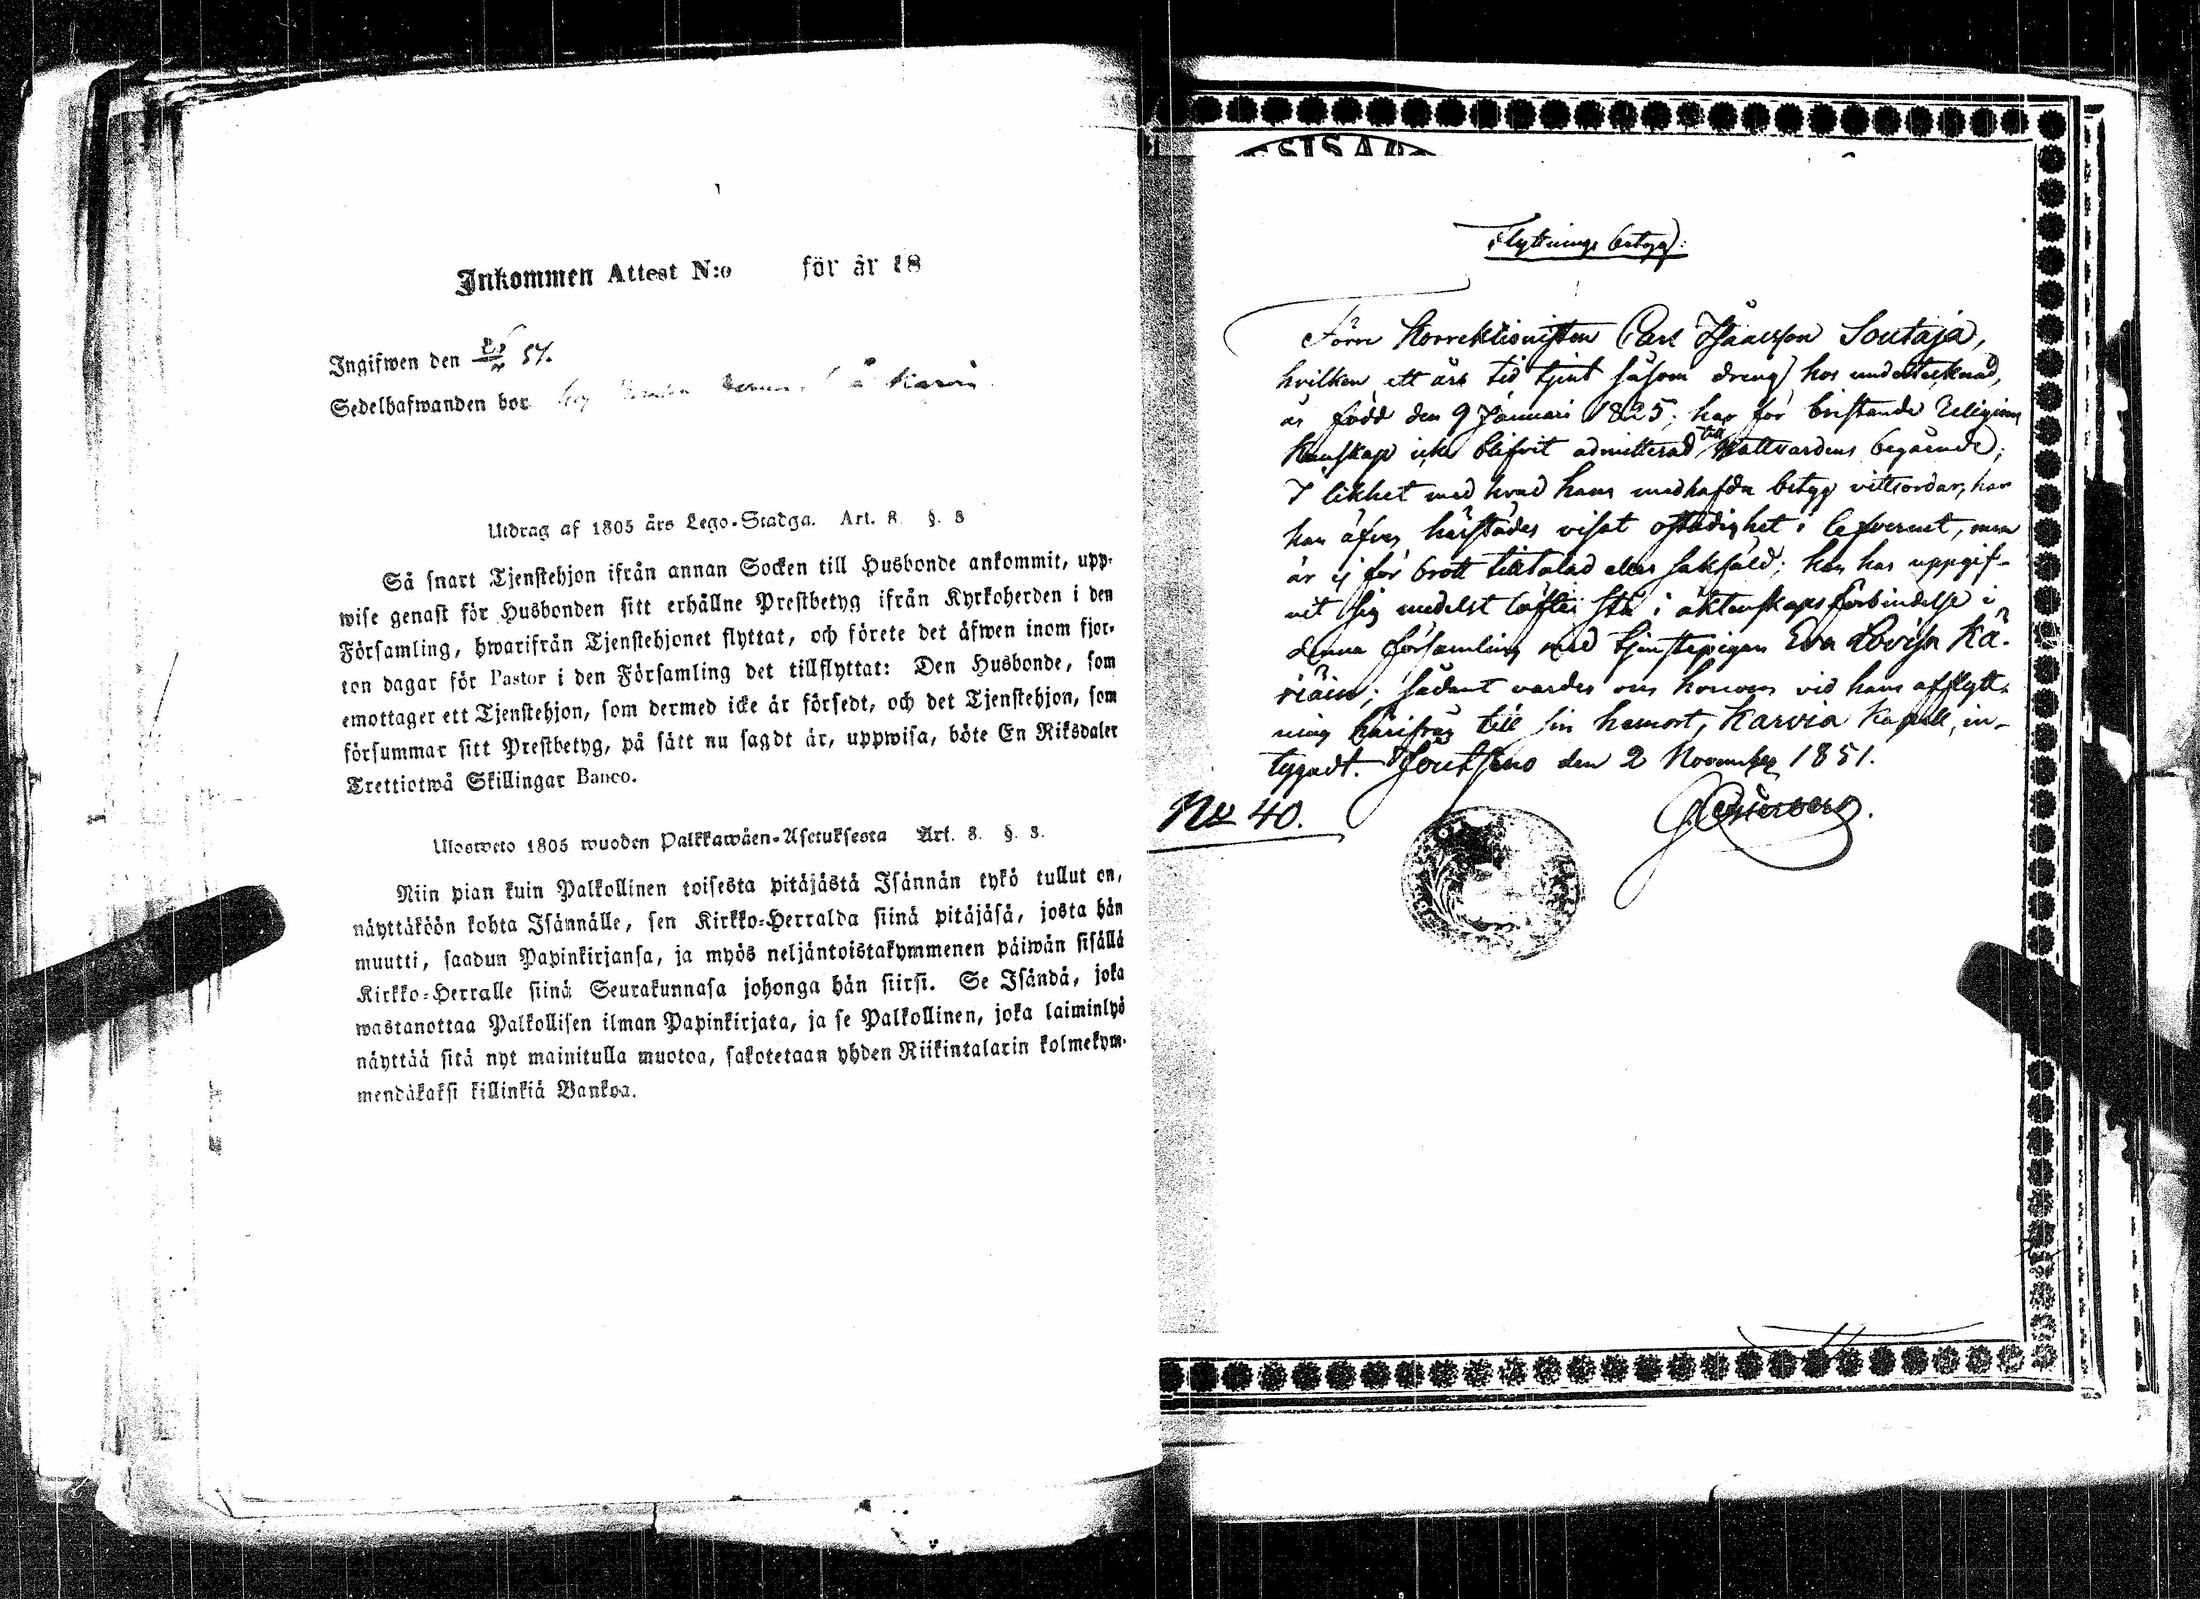 Inkommen Attest N:o för år 18
Ingifwen den 54.
Sedelhafwanden bor Karvia
Utdrag af 1805 års Lego-Stadga. Art. 8. §. 3
Så snart Tjenstehjon ifrån annan Socken till Husbonde ankommit, upp-
wise genast för Husbonden sitt erhållne Prestbetyg ifrån Kyrkoherden i den
Församling, hwarifrån Tjenstehjonet flyttat, och förete det äfwen inom fjor-
ton dagar för Pastor i den Församling det tillflyttat: Den Husbonde, som
emottager ett Tjenstehjon, som dermed icke är försedt, och det Tjenstehjon, som
försummar sitt Prestbetyg, på sätt nu sagdt är, uppwisa, böte En Riksdaler
Trettiotwå Skillingar Banco.
Ulosweto 1805 wuoden Palkkawäen-Asetuksesta Art. 8. §. 3.
Niin pian kuin Palkollinen toisesta pitäjästä Isännän tykö tullut on,
näyttäköön kohta Isännälle, sen Kirkko-Herralda siinä pitäjäsä, josta hän
muutti, saadun Papinkirjansa, ja myös neljäntoistakymmenen päiwän sisällä
Kirkko-Herralle siinä Seurakunnasa johonga hän siirsi. Se Isändä, joka
wastanottaa Palkollisen ilman Papinkirjata, ja se Palkollinen, joka laiminlyö
näyttää sitä nyt mainitulla muotoa, sakotetaan yhden Riikintalarin kolmekym-
mendäkaksi killinkiä Bankoa.
Flyttnings betyg:
Förre Korrektionisten Carl Isaacsson Soutaja,
hvilken ett års tid tjent såsom dreng hos undertecknad,
är född den 9 Januari 1825; har för bristande Religions
Kunskap icke blifvit admitterad till Nattvardens begående;
I likhet med hvad hans medhafda betyg vitsordar, har
han äfven härstädes visat ostadighet i lefvernet, men
är ej för brott tilltalad eller sakfäld; han har uppgif-
vit sig medelst löfte stå i äktenskapsförbindelse i
denna församling med tjenstepigan Eva Lovisa Kä-
riäin; sådant varder om honom vid hans afflytt-
ning härifrån till sin hemort, Karvia Kapell, in-
tygadt. Joutseno den 2 November 1851.
No 40.